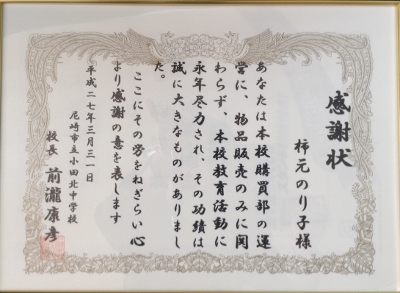 感謝状
柿元のり子様
あなたは本校購買部の運
営に、物品販売のみに関
わらず、本校教育活動に
永年尽力され、その功績は
誠に大きなものがありまし
た。
ここにその労をねぎらい心
より感謝の意を表します
平成二七年三月三一日
尼崎市立小田北中学校
校長 前瀧康彦